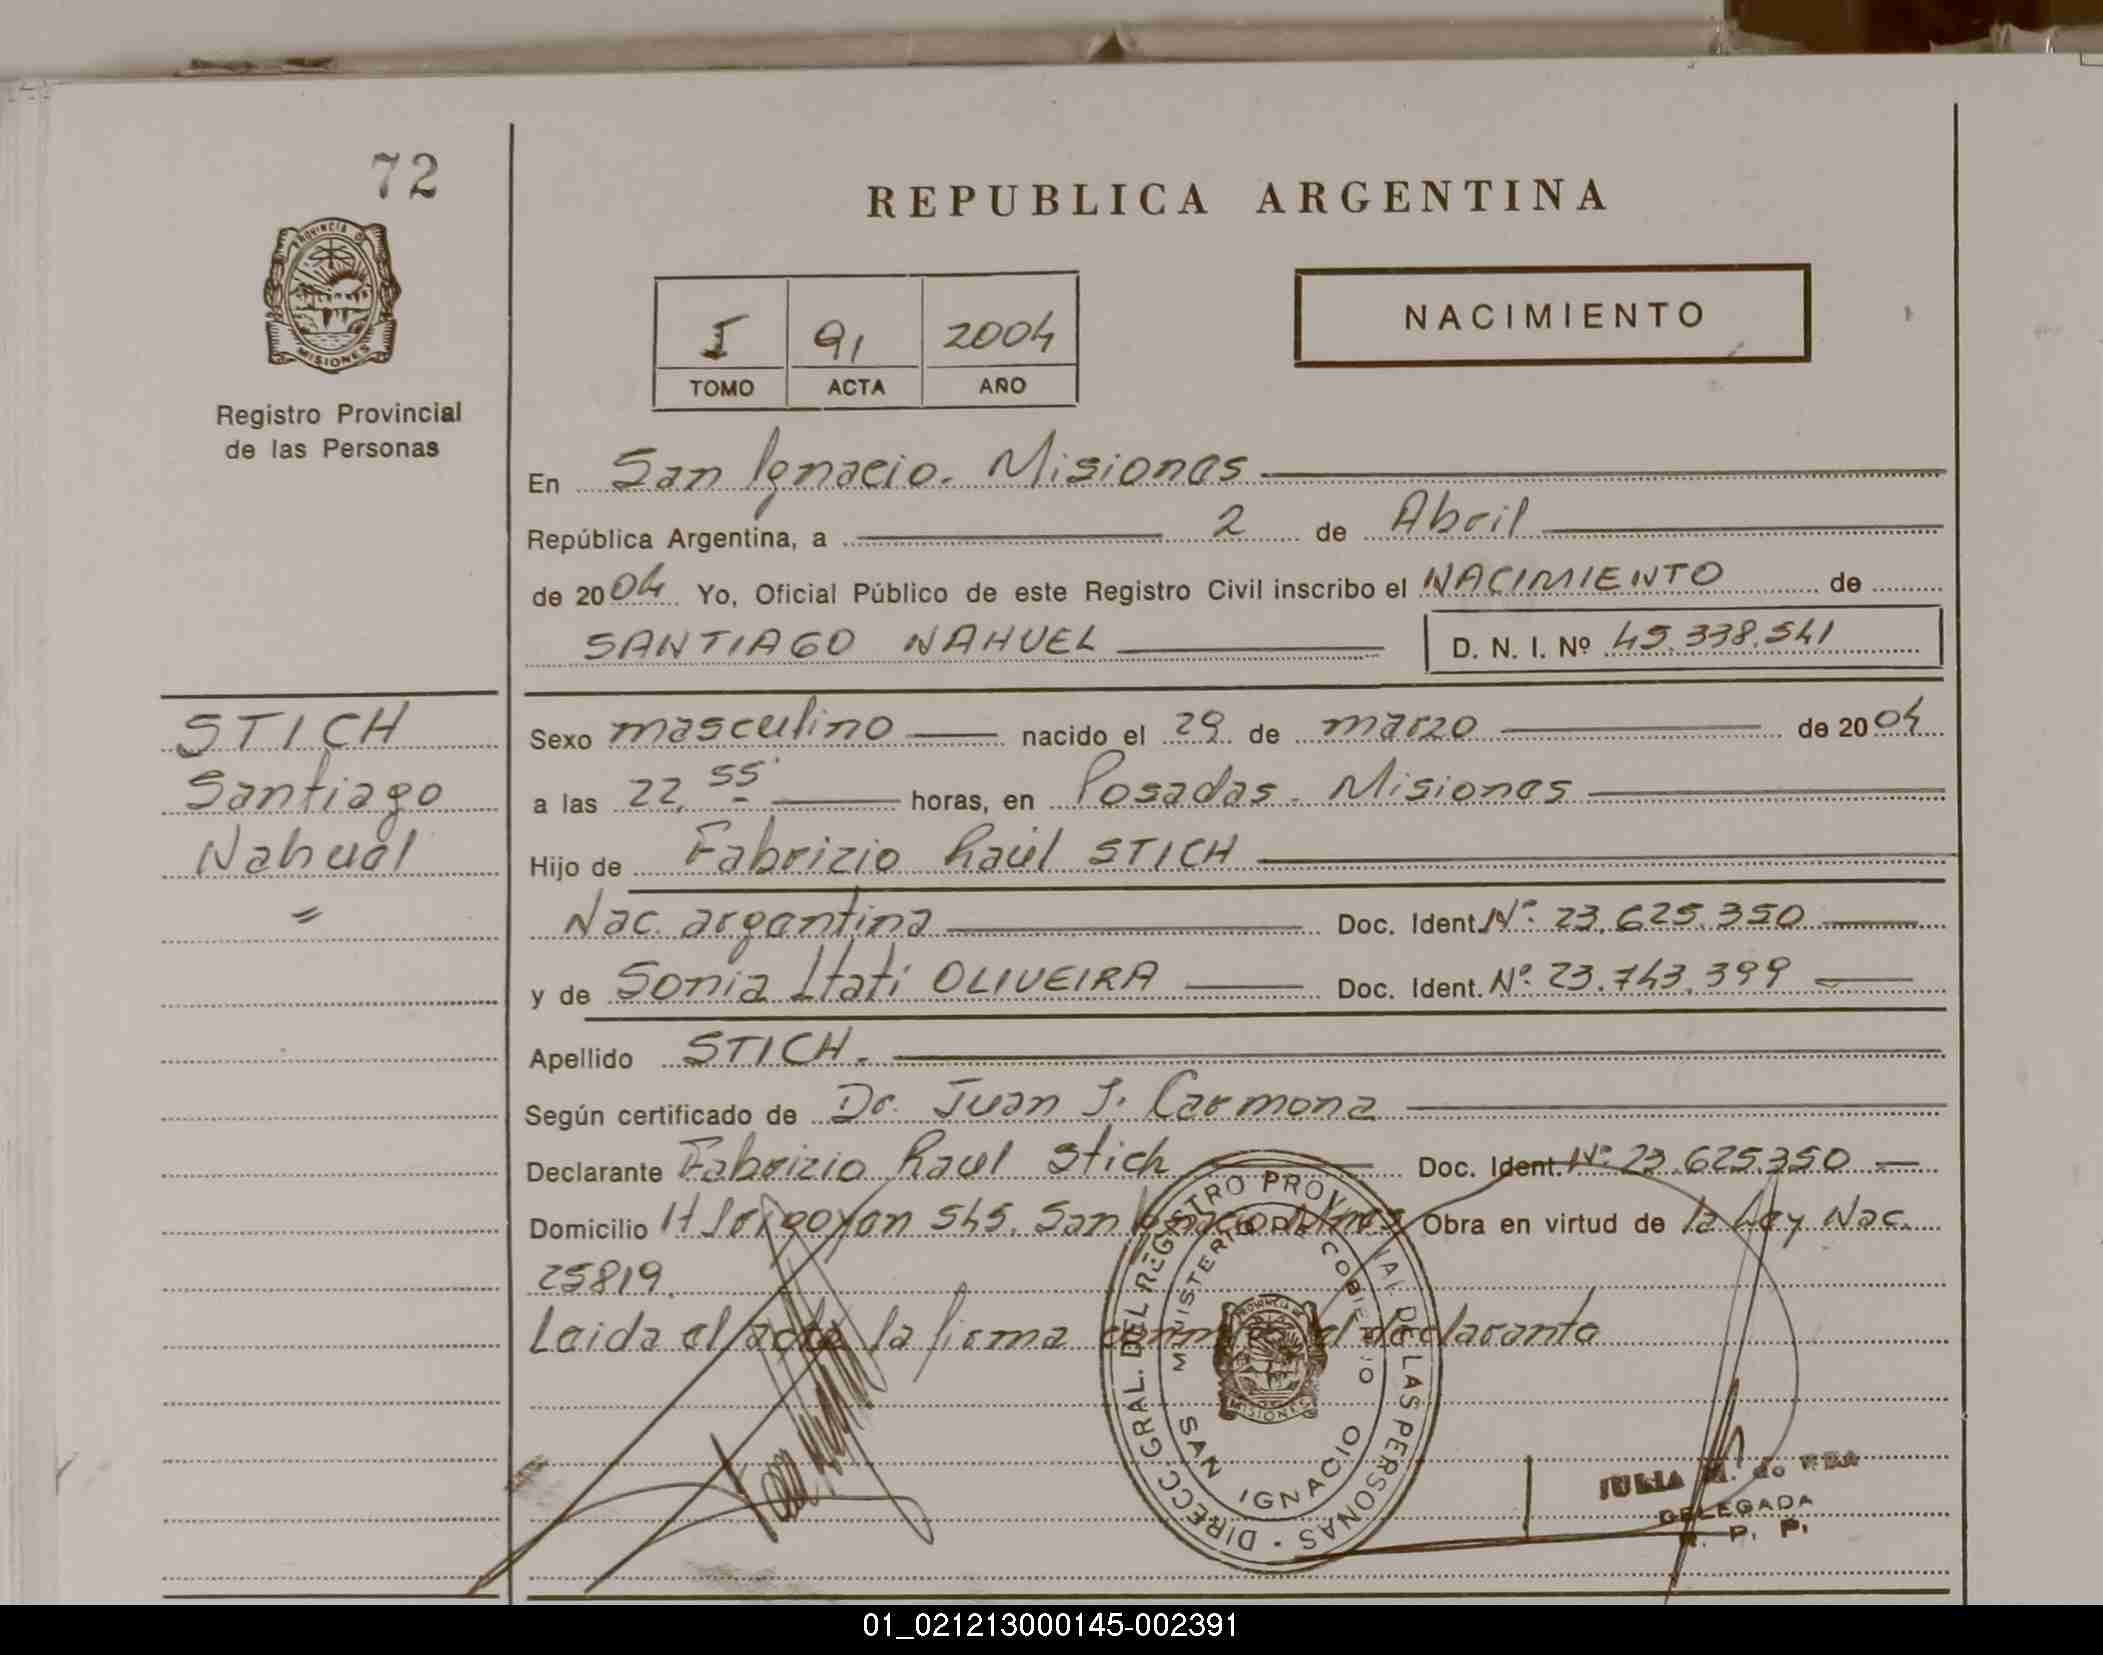 72
REPUBLICA ARGENTINA
PROVINCIA DE
MISIONES
Registro Provincial
de las Personas
I 91 2004
TOMO ACTA AÑO
NACIMIENTO
En San Ignacio. Misiones
República Argentina, a 2 de Abril
de 2004 Yo, Oficial Público de este Registro Civil inscribo el NACIMIENTO de
SANTIAGO NAHUEL D. N. I. Nº 45.338.541
STICH
Santiago
Nahuel
Sexo masculino nacido el 29 de marzo de 2004
a las 22,55' horas, en Posadas - Misiones
Hijo de Fabrizio Raúl STICH
Nac. argentina Doc. Ident. Nº 23.625.350
y de Sonia Itatí OLIVEIRA Doc. Ident. Nº 23.743.399
Apellido STICH.
Según certificado de Dr. Juan J. Carmona
Declarante Fabrizio Raul Stich Doc. Ident. Nº 23.625.350
Domicilio H 545. San Ignacio Mnes Obra en virtud de la Ley Nac.
25819.
Leida el acta la firma el declarante
DIRECC. GRAL. DEL REGISTRO PROVINCIAL DE LAS PERSONAS
MINISTERIO DE GOBIERNO
PROVINCIA DE
MISIONES
SAN IGNACIO
JULIA M. de
DELEGADA
R. P. P.
01_021213000145-002391